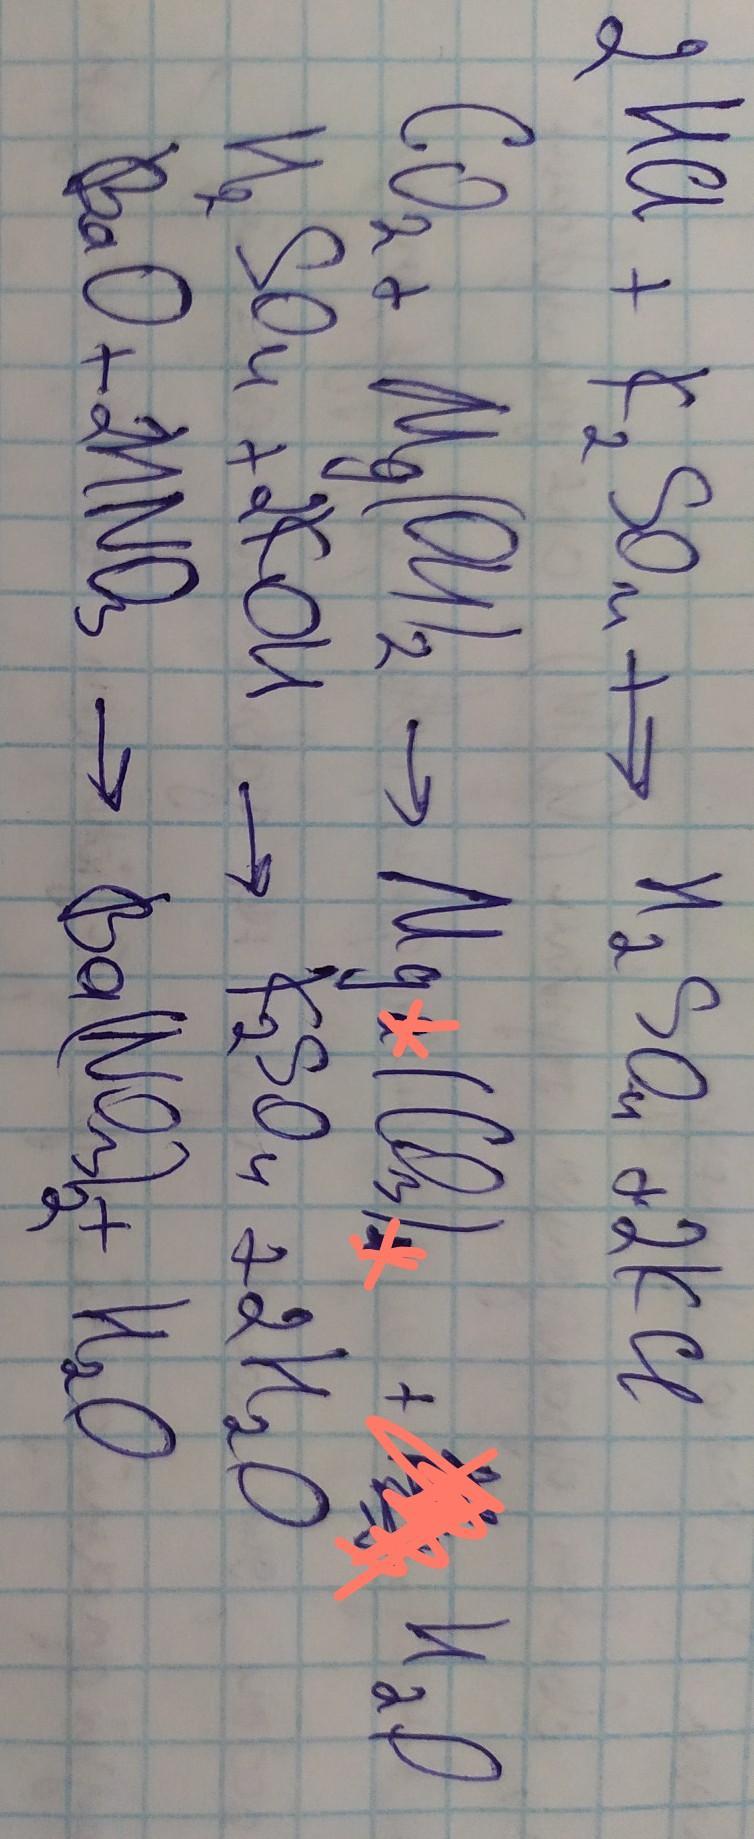 2HCl + K₂SO₄ → H₂SO₄ + 2KCl
CO₂ + Mg(OH)₂ → Mg(CO₃) + H₂O
H₂SO₄ + 2KOH → K₂SO₄ + 2H₂O
BaO + 2HNO₃ → Ba(NO₃)₂ + H₂O